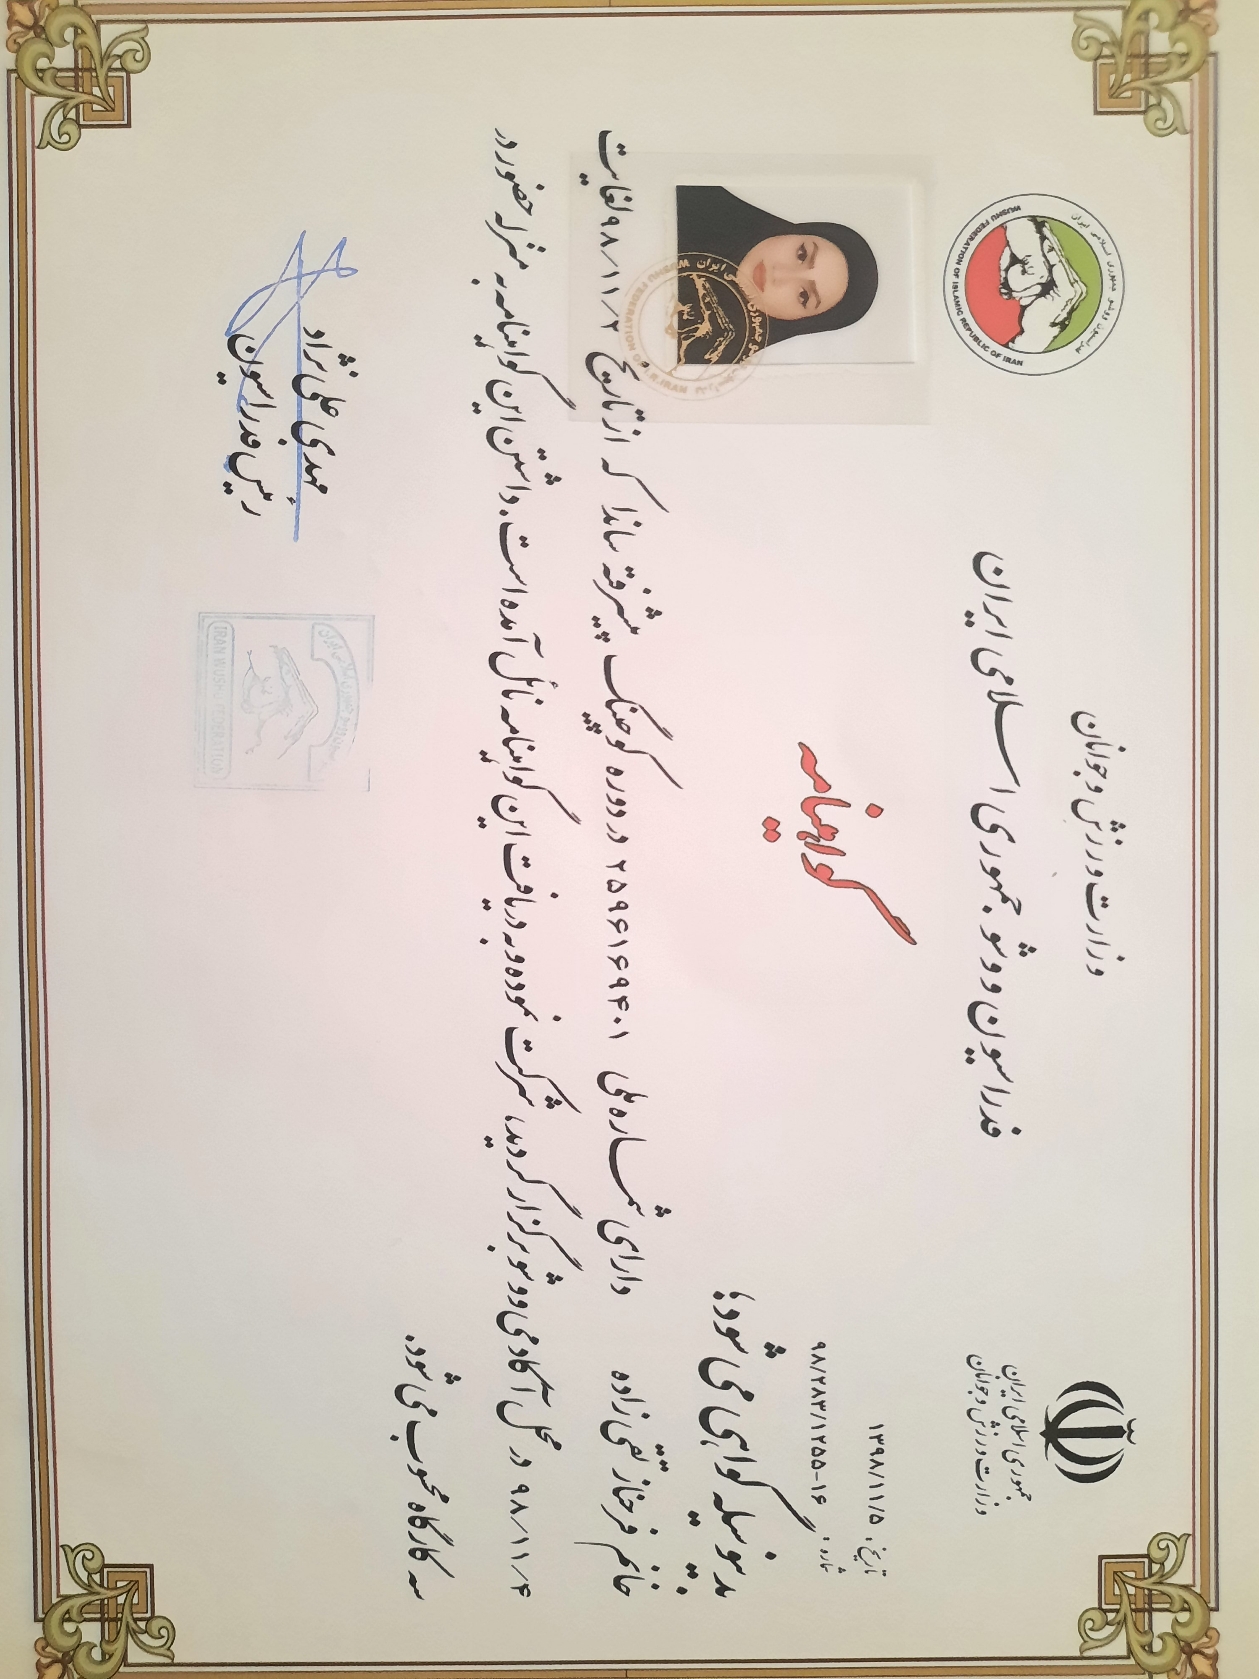 وزارت ورزش و جوانان
فدراسیون ووشو جمهوری اسلامی ایران
فدراسیون ووشو جمهوری اسلامی ایران
WUSHU FEDERATION OF ISLAMIC REPUBLIC OF IRAN
جمهوری اسلامی ایران
وزارت ورزش و جوانان
تاریخ: ۱۳۹۸/۱۱/۵
شماره: ۹۸/۲۸۳/۱۲۵۵-۱۶
گواهینامه
بدینوسیله گواهی می شود:
خانم فرحناز تقی زاده دارای شماره ملی ۲۵۹۶۱۶۹۴۰۱ در دوره کوچینگ پیشرفته ساندا که از تاریخ ۹۸/۱۱/۲ لغایت
۹۸/۱۱/۴ در محل آکادمی ووشو برگزار گردید، شرکت نموده و به دریافت این گواهینامه نائل آمده است. داشتن این گواهینامه به منزله حضور در
سه کارگاه محسوب می شود.
مهدی علی نژاد
رئیس فدراسیون
IRAN WUSHU FEDERATION